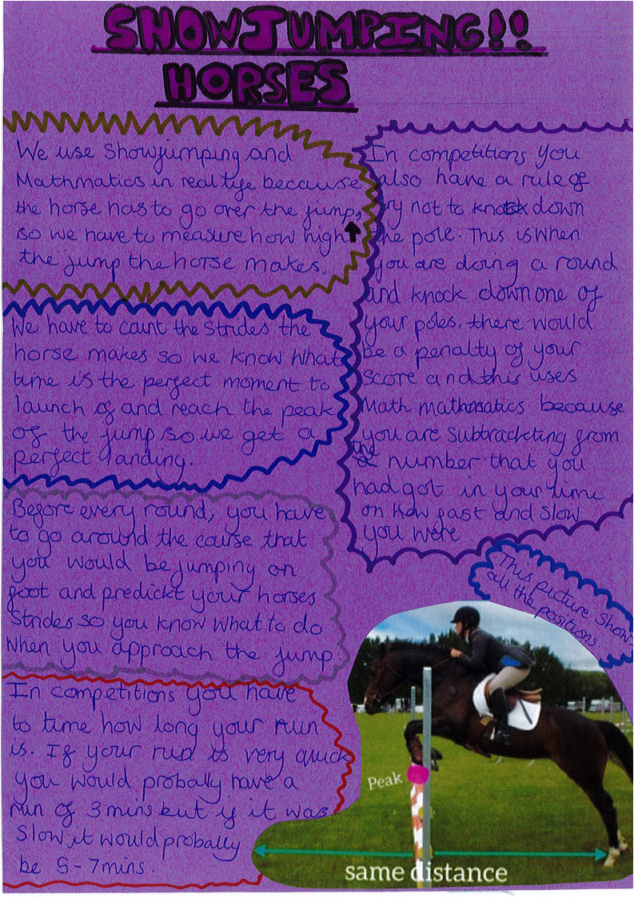 SHOWJUMPING!!
HORSES
We use Showjumping and
Mathmatics in real life because
the horse has to go over the jump,
so we have to measure how high
the jump the horse makes.
We have to count the strides the
horse makes so we know what
time is the perfect moment to
launch of and reach the peak
of the jump so we get a
perfect landing.
Before every round, you have
to go around the course that
you would be jumping on
foot and predickt your horses
strides so you know what to do
when you approach the jump
In competitions you have
to time how long your run
is. If your run is very quick
you would probally have a
run of 3 mins but if it was
slow it would probally
be 5-7mins.
In competitions you
also have a rule of
try not to knock down
the pole. This is when
you are doing a round
and knock down one of
your poles. there would
be a penalty of your
score and this uses
Math mathmatics because
you are subtrackting from
the number that you
had got in your time
on how fast and slow
you were
This picture show
all the positions
Peak
same distance